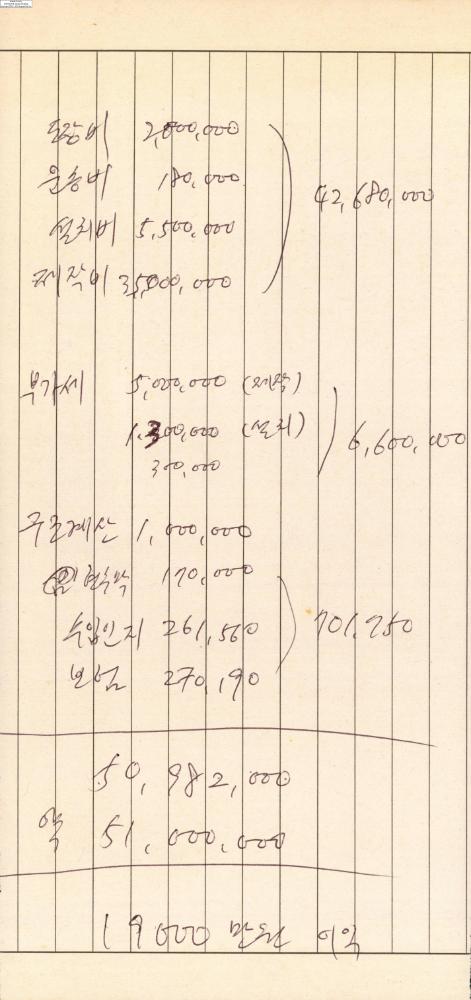 도장비 2,000,000
운송비 180,000 42,680,000
설치비 5,500,000
제작비 35,000,000
부가세 5,000,000 (제작)
1,300,000 (설치) 6,600,000
300,000
구조계산 1,000,000
현수막 170,000
수입인지 261,560 701,750
보험 270,190
50,982,000
약 51,000,000
19000 만원 이익